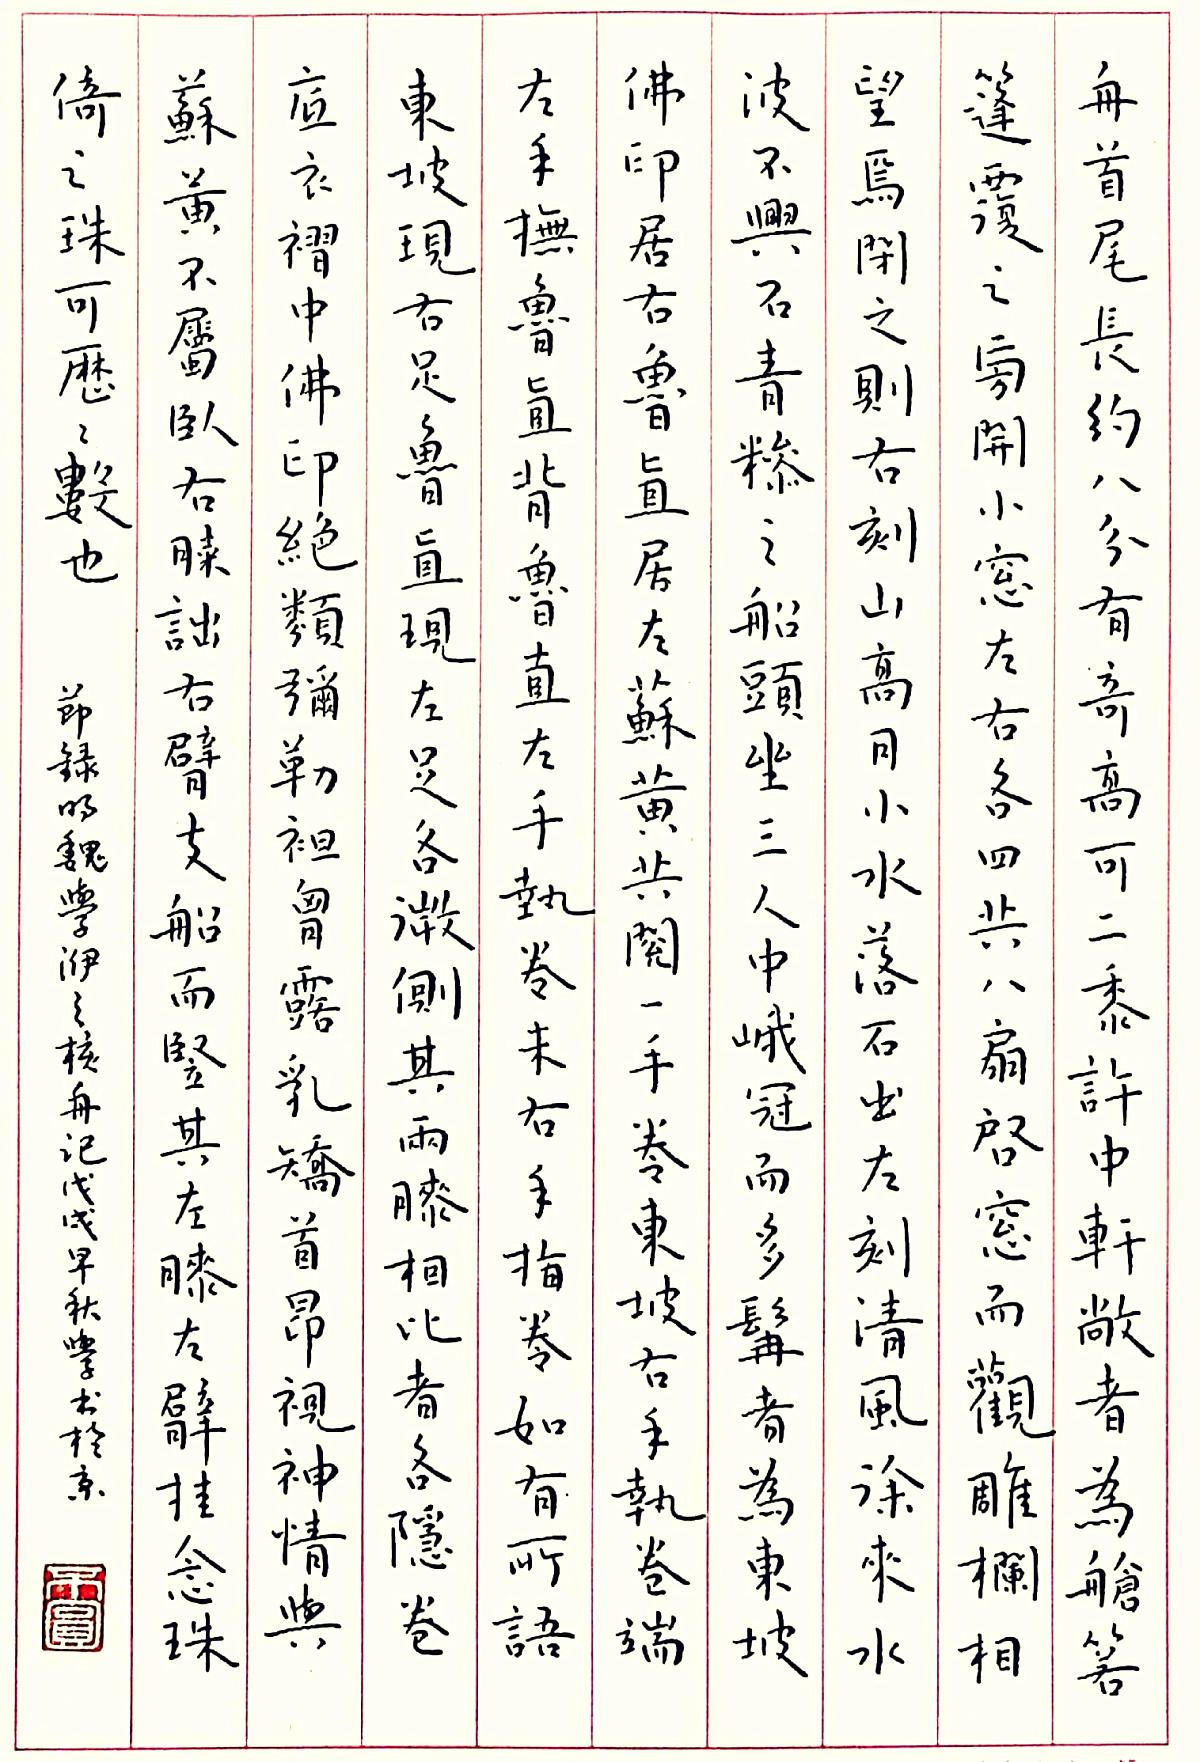 舟首尾長約八分有奇高可二黍許中軒敞者為艙箬
篷覆之旁開小窓左右各四共八扇啓窓而觀雕欄相
望焉閉之則右刻山高月小水落石出左刻清風徐來水
波不興石青糝之船頭坐三人中峨冠而多髯者為東坡
佛印居右魯直居左蘇黃共閱一手卷東坡右手執卷端
左手撫魯直背魯直左手執卷末右手指卷如有所語
東坡現右足魯直現左足各微側其兩膝相比者各隱卷
底衣褶中佛印絕類彌勒袒胷露乳矯首昂視神情與
蘇黃不屬臥右膝詘右臂支船而豎其左膝左臂挂念珠
倚之珠可歷〻數也
節録明魏學洢之核舟記戊戌早秋學书於京